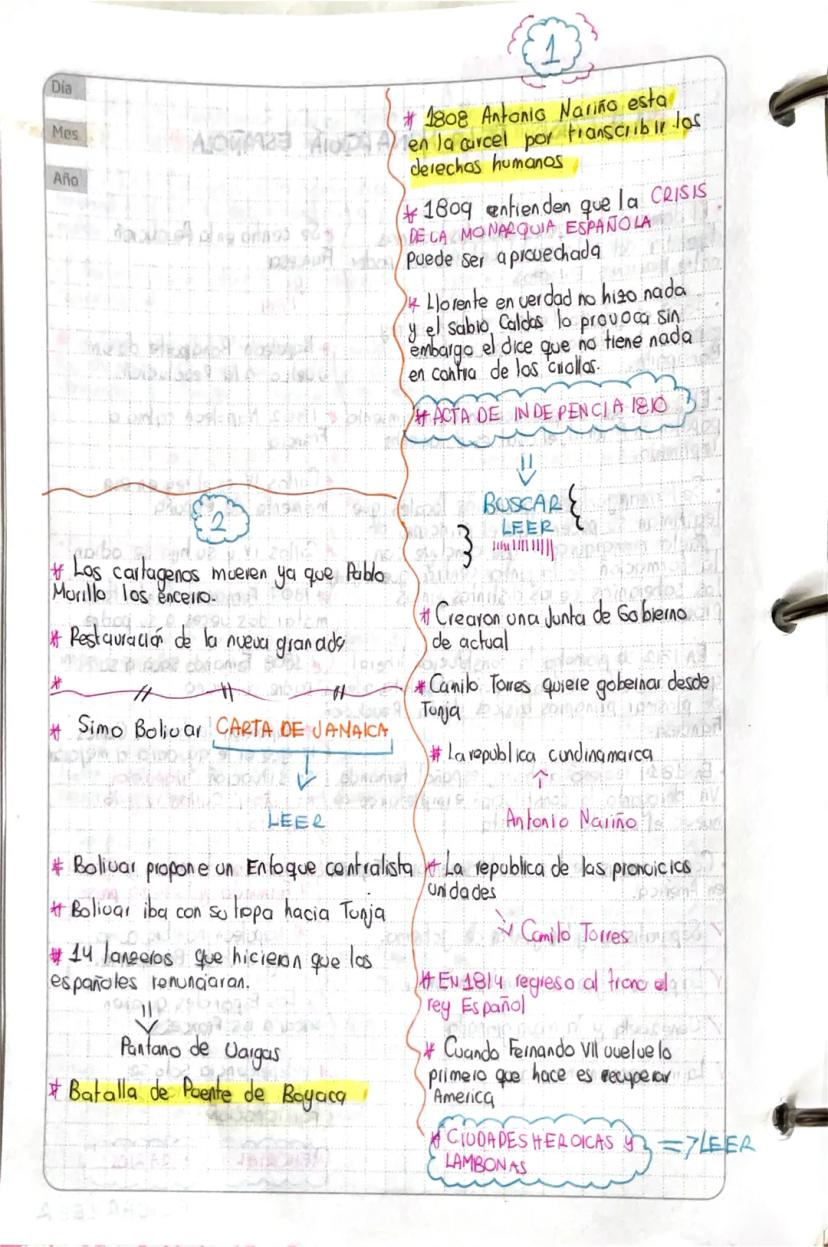 Día
Mes
Año
1
* 1808 Antonio Nariño esta
en la carcel por transcribir los
derechos humanos
* 1809 entienden que la CRISIS
DE LA MONARQUIA ESPAÑOLA
Puede ser aprovechada
* Llorente en verdad no hizo nada
y el sabio Caldas lo provoca sin
embargo el dice que no tiene nada
en contra de los criollos.
* ACTA DE INDEPENCIA 1810
BUSCAR
LEER
* Crearon una Junta de Gobierno
de actual
* Camilo Torres quiere gobernar desde
Tunja
* La republica cundinamarca
Antonio Nariño
* La republica de las provicias
unidades
Camilo Torres
* EN 1814 regreso al trono el
rey Español
* Cuando Fernando VII vuelve lo
primero que hace es recuperar
America
* CIUDADES HEROICAS Y
LAMBONAS => LEER
2
* Los cartagenos mueren ya que Pablo
Morillo los encerro.
* Restauración de la nueva granada
*
* Simo Bolivar CARTA DE JAMAICA
LEER
* Bolivar propone un Enfoque centralista
* Bolivar iba con su tropa hacia Tunja
* 14 lanseros que hicieron que los
españoles renunciaran.
Pantano de Vargas
* Batalla de Puente de Boyaca